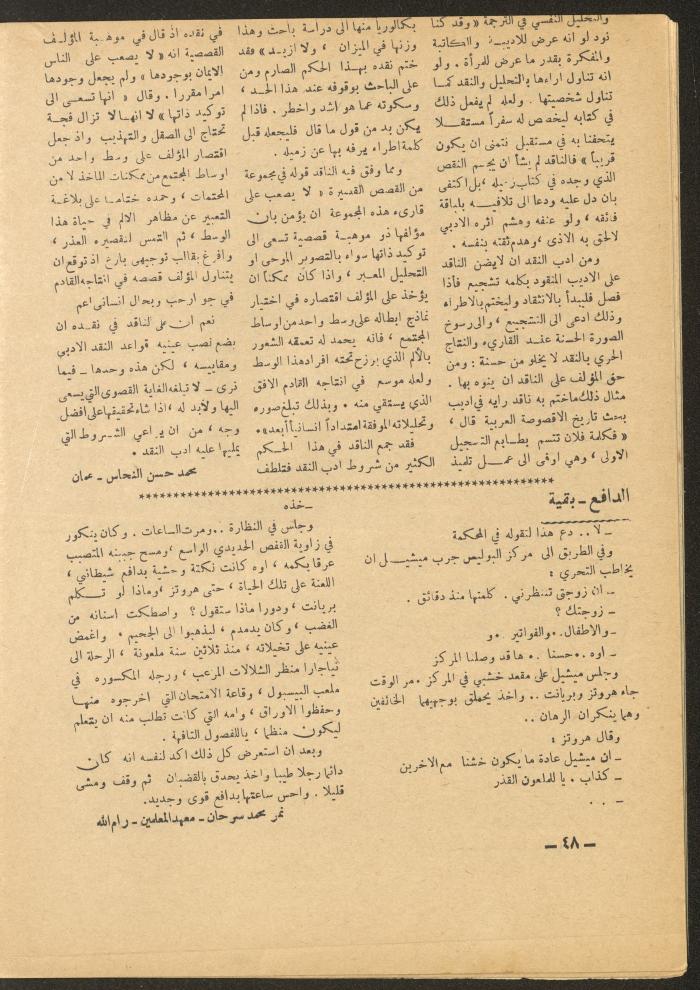 والتحليل النفسي في الترجمة «وقد كنا
نود لو انه عرض للاديبة والكاتبة
والمفكرة بقدر ما عرض للمرأة . ولو
انه تناول اراءها بالتحليل والنقد كما
تناول شخصيتها . ولعله لم يفعل ذلك
في كتابه ليخصص له سفراً مستقلا
يتحفنا به في مستقبل نتمنى ان يكون
قريباً » فالناقد لم يشأ ان يجسم النقص
الذي وجده في كتاب زميله ، بل اكتفى
بان دل عليه ودعا الى تلافيه بلباقة
فائقه ، ولو عنفه وهشم اثره الادبي
لالحق به الاذى ، وهدم ثقته بنفسه .
ومن ادب النقد ان لايضن الناقد
على الاديب المنقود بكلمه تشجيع فأذا
فصل فليبدأ بالانتقاد وليختم بالاطراء
وذلك ادعى الى التشجيع ، والى رسوخ
الصورة الحسنة عند القاريء والنتاج
الحري بالنقد لا يخلو من حسنة : ومن
حق المؤلف على الناقد ان ينوه بها .
مثال ذلك ماختم به ناقد رايه في اديب
بحث تاريخ الاقصوصة العربية قال ،
« فكلمة فلان تتسم بطابع التسجيل
الاولى ، وهي اوفى الى عمل تلميذ
بكالوريا منها الى دراسة باحث وهذا
وزنها في الميزان ، ولا ازيد » فقد
ختم نقده بهذا الحكم الصارم ومن
على الباحث بوقوفه عند هذا الحد ،
وسكوته عما هو اشد واخطر . فاذا لم
يكن بد من قول ما قال فليجعله قبل
كلمة اطراء يرفه بها عن زميله .
ومما وفق فيه الناقد قوله في مجموعة
من القصص القصيرة « لا يصعب على
قارىء هذه المجموعة ان يؤمن بان
مؤلفها ذو موهبة قصصية تسعى الى
توكيد ذاتها سواء بالتصوير الموحى او
التحليل المعبر ، واذا كان ممكناً ان
يؤخذ على المؤلف اقتصاره في اختيار
نماذج ابطاله على وسط واحد من اوساط
المجتمع ، فانه يحمد له تعمقه الشعور
بالألم الذي يرزح تحته افراد هذا الوسط
ولعله موسع في انتاجه القادم الافق
الذي يستقي منه . وبذلك تبلغ صوره
وتحليلاته الموفقة امتداداً انسانياً أبعد».
فقد جمع الناقد في هذا الحكم
الكثير من شروط ادب النقد فتلطف
في نقده اذ قال في موهبة المؤلف
القصصية انه « لا يصعب على الناس
الايمان بوجودها » ولم يجعل وجودها
امرا مقررا . وقال « انها تسعى الى
توكيد ذاتها» لا انها لا تزال فجة
تحتاج الى الصقل والتهذيب واذ جعل
اقتصار المؤلف على وسط واحد من
اوساط المجتمع من ممكنات المآخذ لا من
المحتمات ، وحمده ختاما على بلاغة
التعبير عن مظاهر الالم في حياة هذا
الوسط ، ثم التمس لتقصيره العذر ،
وافرغ بقالب توجيهي بارع اذ توقع ان
يتناول المؤلف قصصه في انتاجه القادم
في جو ارحب وبحال انسانى اعم
نعم ان على الناقد في نقده ان
يضع نصب عينيه قواعد النقد الادبي
ومقاييسه ، لكن هذه وحدها - فيما
نرى - لا تبلغه الغاية القصوى التي يسعى
اليها ولابد له ، اذا شاء تحقيقها على افضل
وجه ، من ان يراعي الشروط التي
يمليها عليه ادب النقد .
محمد حسن النحاس - عمان
الدافع - بقية
- لا .. دع هذا لنقوله في المحكمة
وفي الطريق الى مركز البوليس جرب ميشيل ان
يخاطب التحري :
- ان زوجتي تنتظرني . كلمتها منذ دقائق .
- زوجتك ؟
- والاطفال .. والفواتير .. و
- اوه .. حسنا .. ها قد وصلنا المركز
وجلس ميشيل على مقعد خشبي في المركز . مر الوقت
جاء هروتز وبريانت .. واخذ يحملق بوجهيهما الخائفين
وهما ينكران الرهان ..
وقال هروتز :
- ان ميشيل عادة ما يكون خشنا مع الاخرين
- كذاب . يا للملعون القذر
- . .
- خذه
وجلس في النظارة .. ومرت الساعات . وكان يتكور
في زاوية القفص الحديدي الواسع ، ومسح جبينه المتصبب
عرقا بكمه ، اوه كانت نكتة وحشية بدافع شيطاني ،
اللعنة على تلك الحياة ، حتى هروتز ، وماذا لو تكلم
بريانت ، ودورا ماذا ستقول ؟ واصطكت اسنانه من
الغضب ، وكان يدمدم ، ليذهبوا الى الجحيم . واغمض
عينيه على تخيلاته ، منذ ثلاثين سنة ملعونة ، الرحلة الى
نياجارا منظر الشلالات المرعب ، ورجله المكسوره في
ملعب البيسبول ، وقاعة الامتحان التي اخرجوه منها
وحفظوا الاوراق ، وامه التي كانت تطلب منه ان يتعلم
ليكون منظما ، ياللفصول التافهة .
وبعد ان استعرض كل ذلك اكد لنفسه انه كان
دائما رجلا طيبا واخذ يحدق بالقضبان ثم وقف ومشى
قليلا . واحس ساعتها بدافع قوى وجديد.
نمر محمد سرحان - معهد المعلمين - رام الله
- ٤٨ -